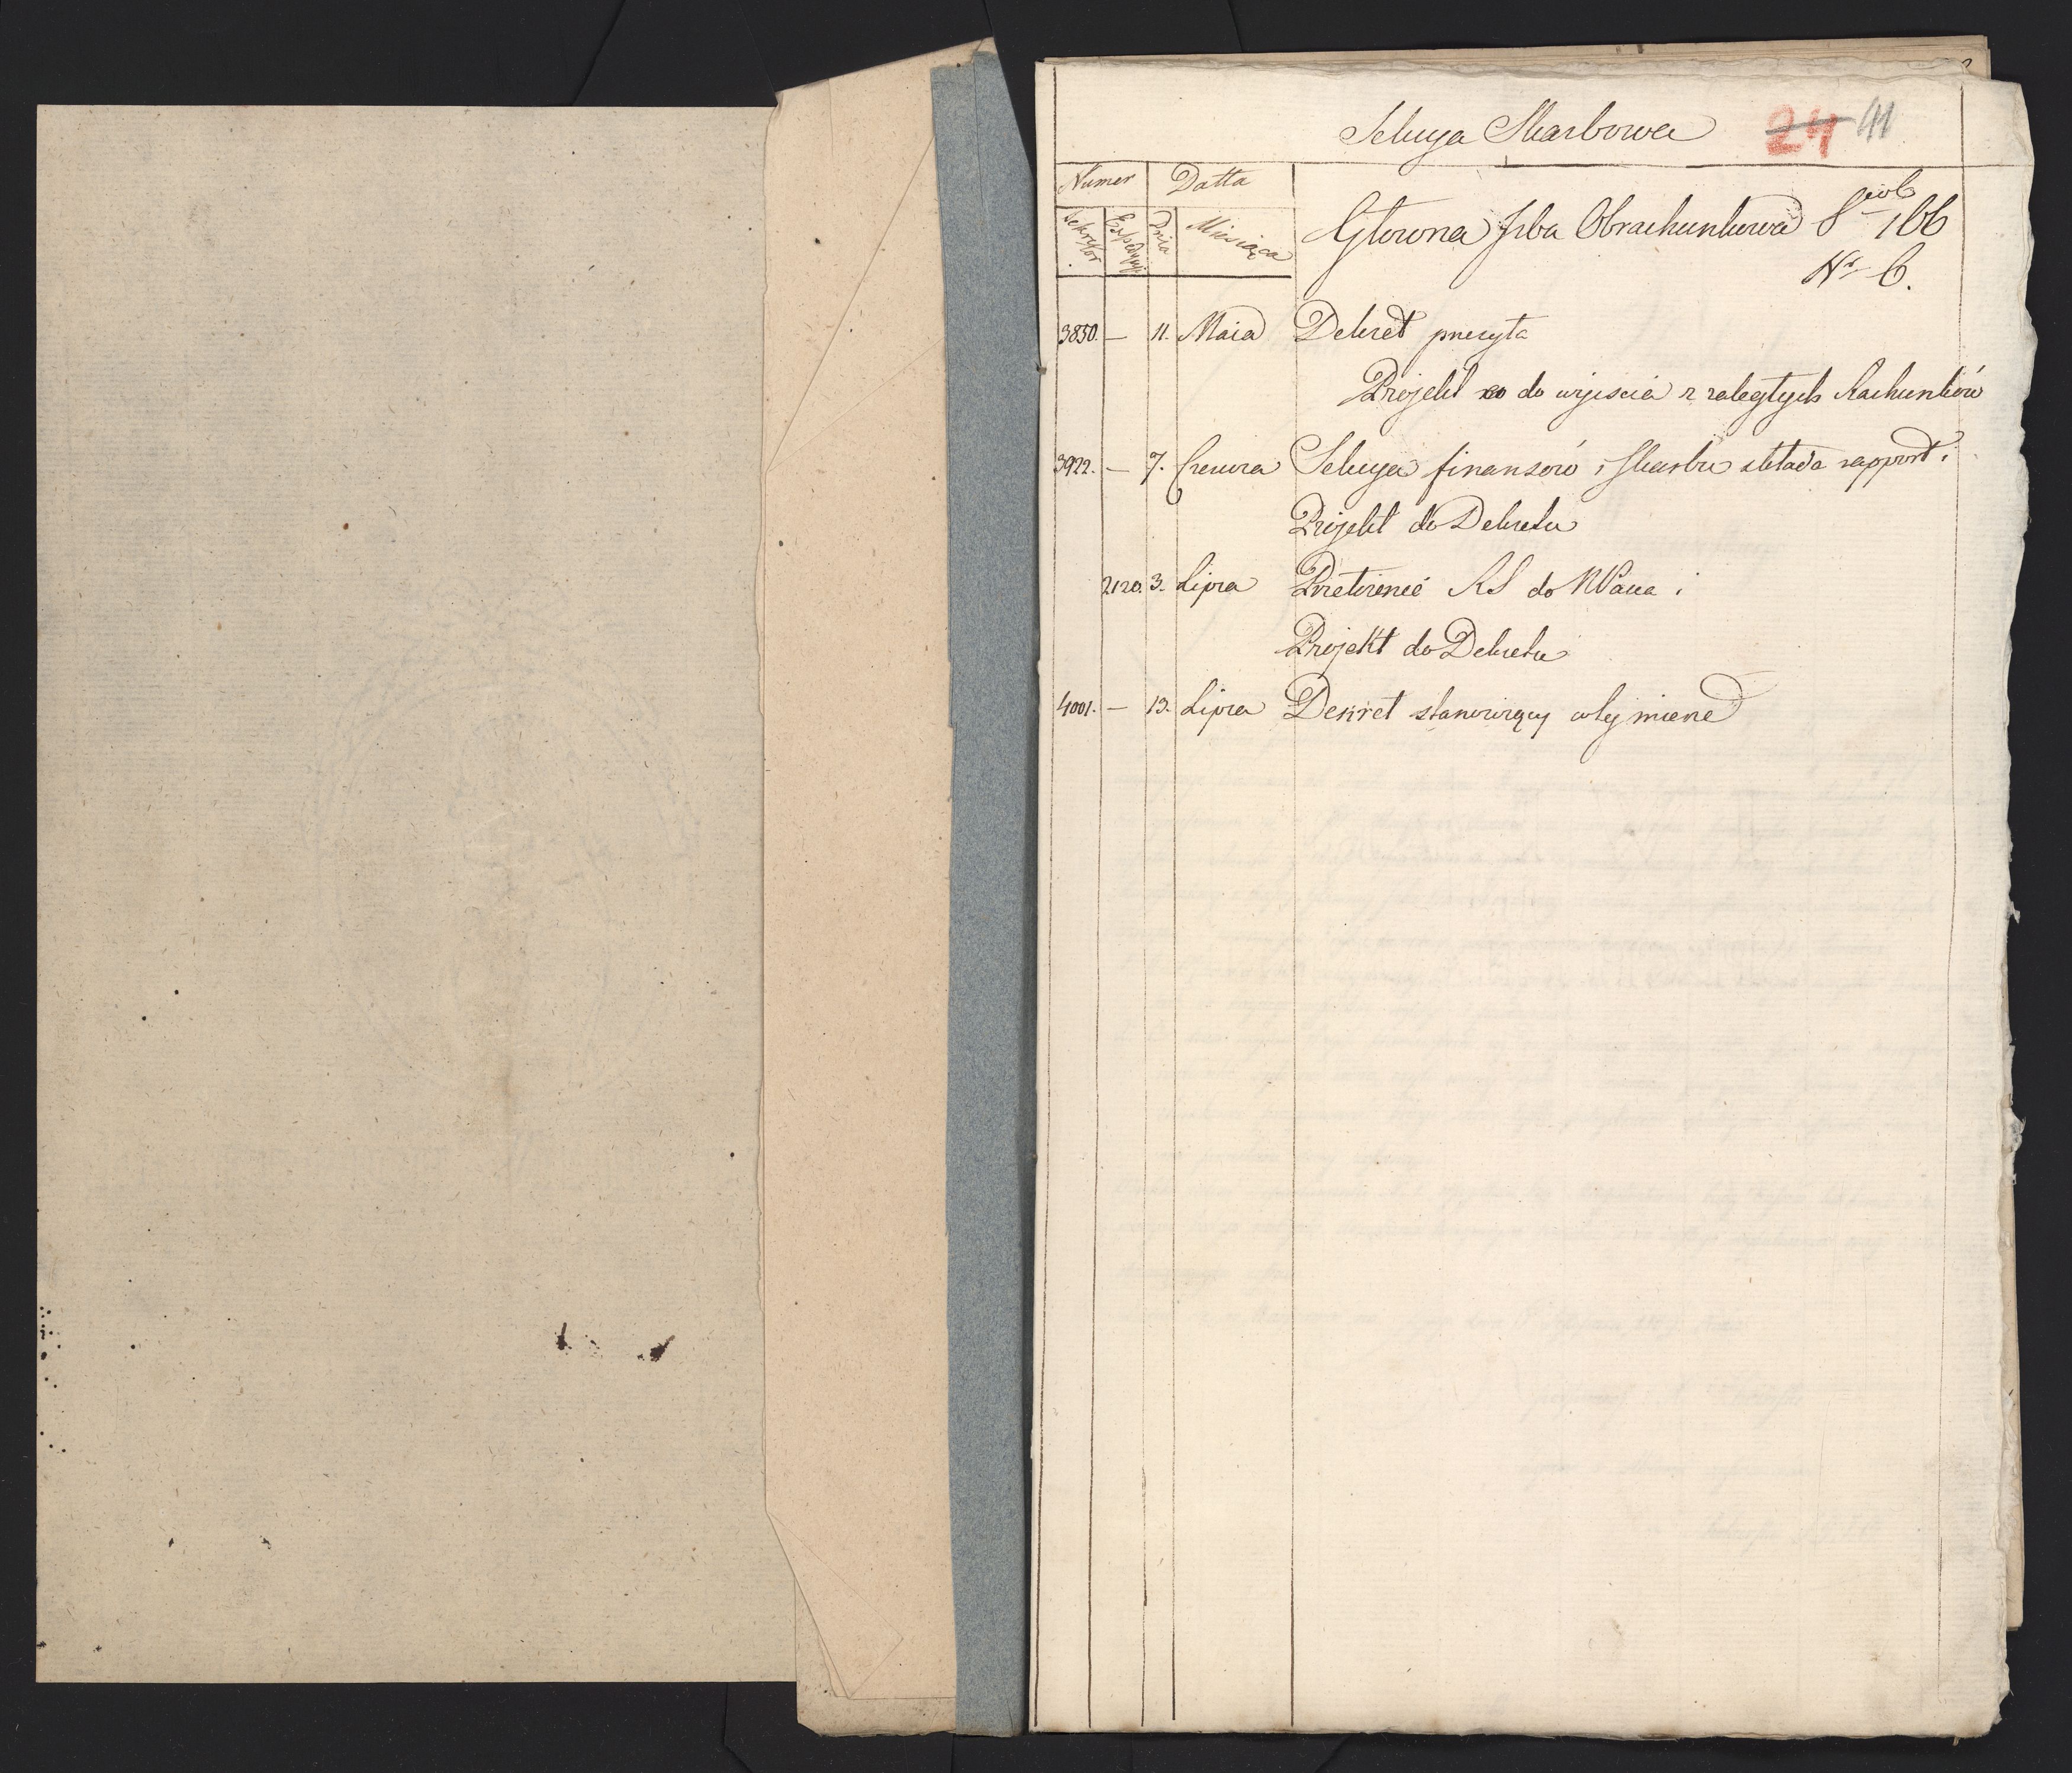 Sekcya Skarbowa 24 41
Numer Datta
Sekcyior Expedycyi Dnia Miesiąca Głowna Jzba Obrachunkowa 8 vol 166
Nr 6.
3830. — 11. Maia Dekret przesyła
Projekt co do wyiscia z zaległych Rachunków
3922. — 7. Czerwca Sekcya finansów i Skarbu składa rapport i
Projekt do Dekretu
2120. 3. Lipca Przełożenie RS do NPana i
Projekt do Dekretu
4001. — 13. Lipca Dekret stanowiący wtej mierze